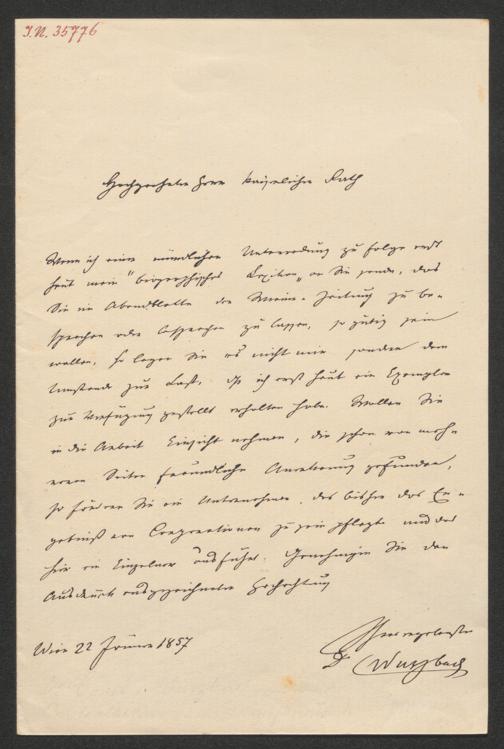 I.N. 35776
Hochgeehrter Herr kaiserlicher Rath
Wenn ich einer mündlichen Unterredung zu folge erst
heut mein "biographisches Lexikon" an Sie sende, das
Sie im Abendblatte der Wiener-Zeitung zu be-
sprechen oder besprechen zu lassen, so gütig sein
wollen, so legen Sie es nicht mir sondern dem
Umstande zur Last, daß ich erst heut ein Exemplar
zur Verfügung gestellt erhalten habe. Wollen Sie
in die Arbeit Einsicht nehmen, die schon von meh-
reren Seiten freundliche Anerkennung gefunden,
so fördern Sie ein Unternehmen, das bisher das Er-
gebniß von Corporationen zu sein pflegte und das
hier ein Einzelner ausführt. Genehmigen Sie den
Ausdruck ausgezeichneter Hochachtung
Wien 22 Jänner 1857
Ihres ergebensten
Dr Wurzbach